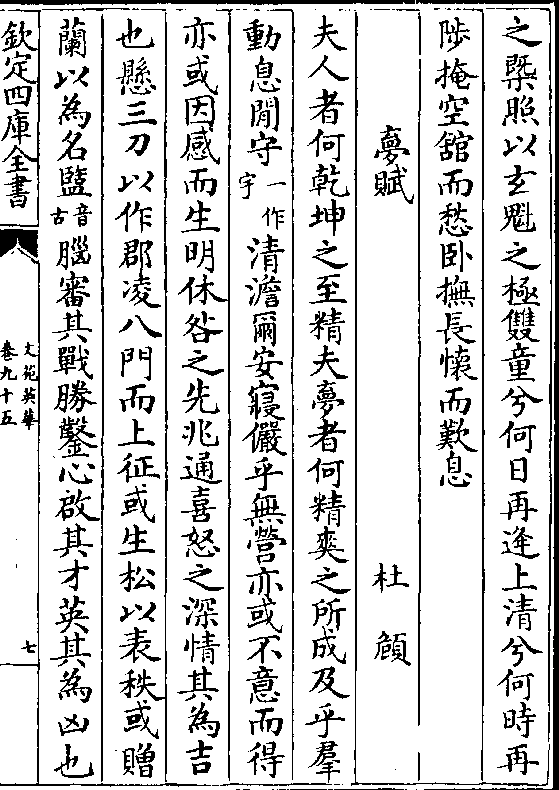 之槩照以玄魁之極雙童兮何日再逢上清兮何時再
陟掩空舘而愁卧撫長懷而歎息
夢賦 杜顧
夫人者何乾坤之至精夫夢者何精爽之所成及乎羣
動息閒守一作宇清澹爾安寢儼乎無營亦或不意而得
亦或因感而生明休咎之先兆通喜怒之深情其為吉
也懸三刀以作郡凌八門而上征或生松以表秩或贈
蘭以為名盬音古腦審其戰勝鑿心啟其才英其為凶也
欽定四庫全書
文苑英華
卷九十五
七